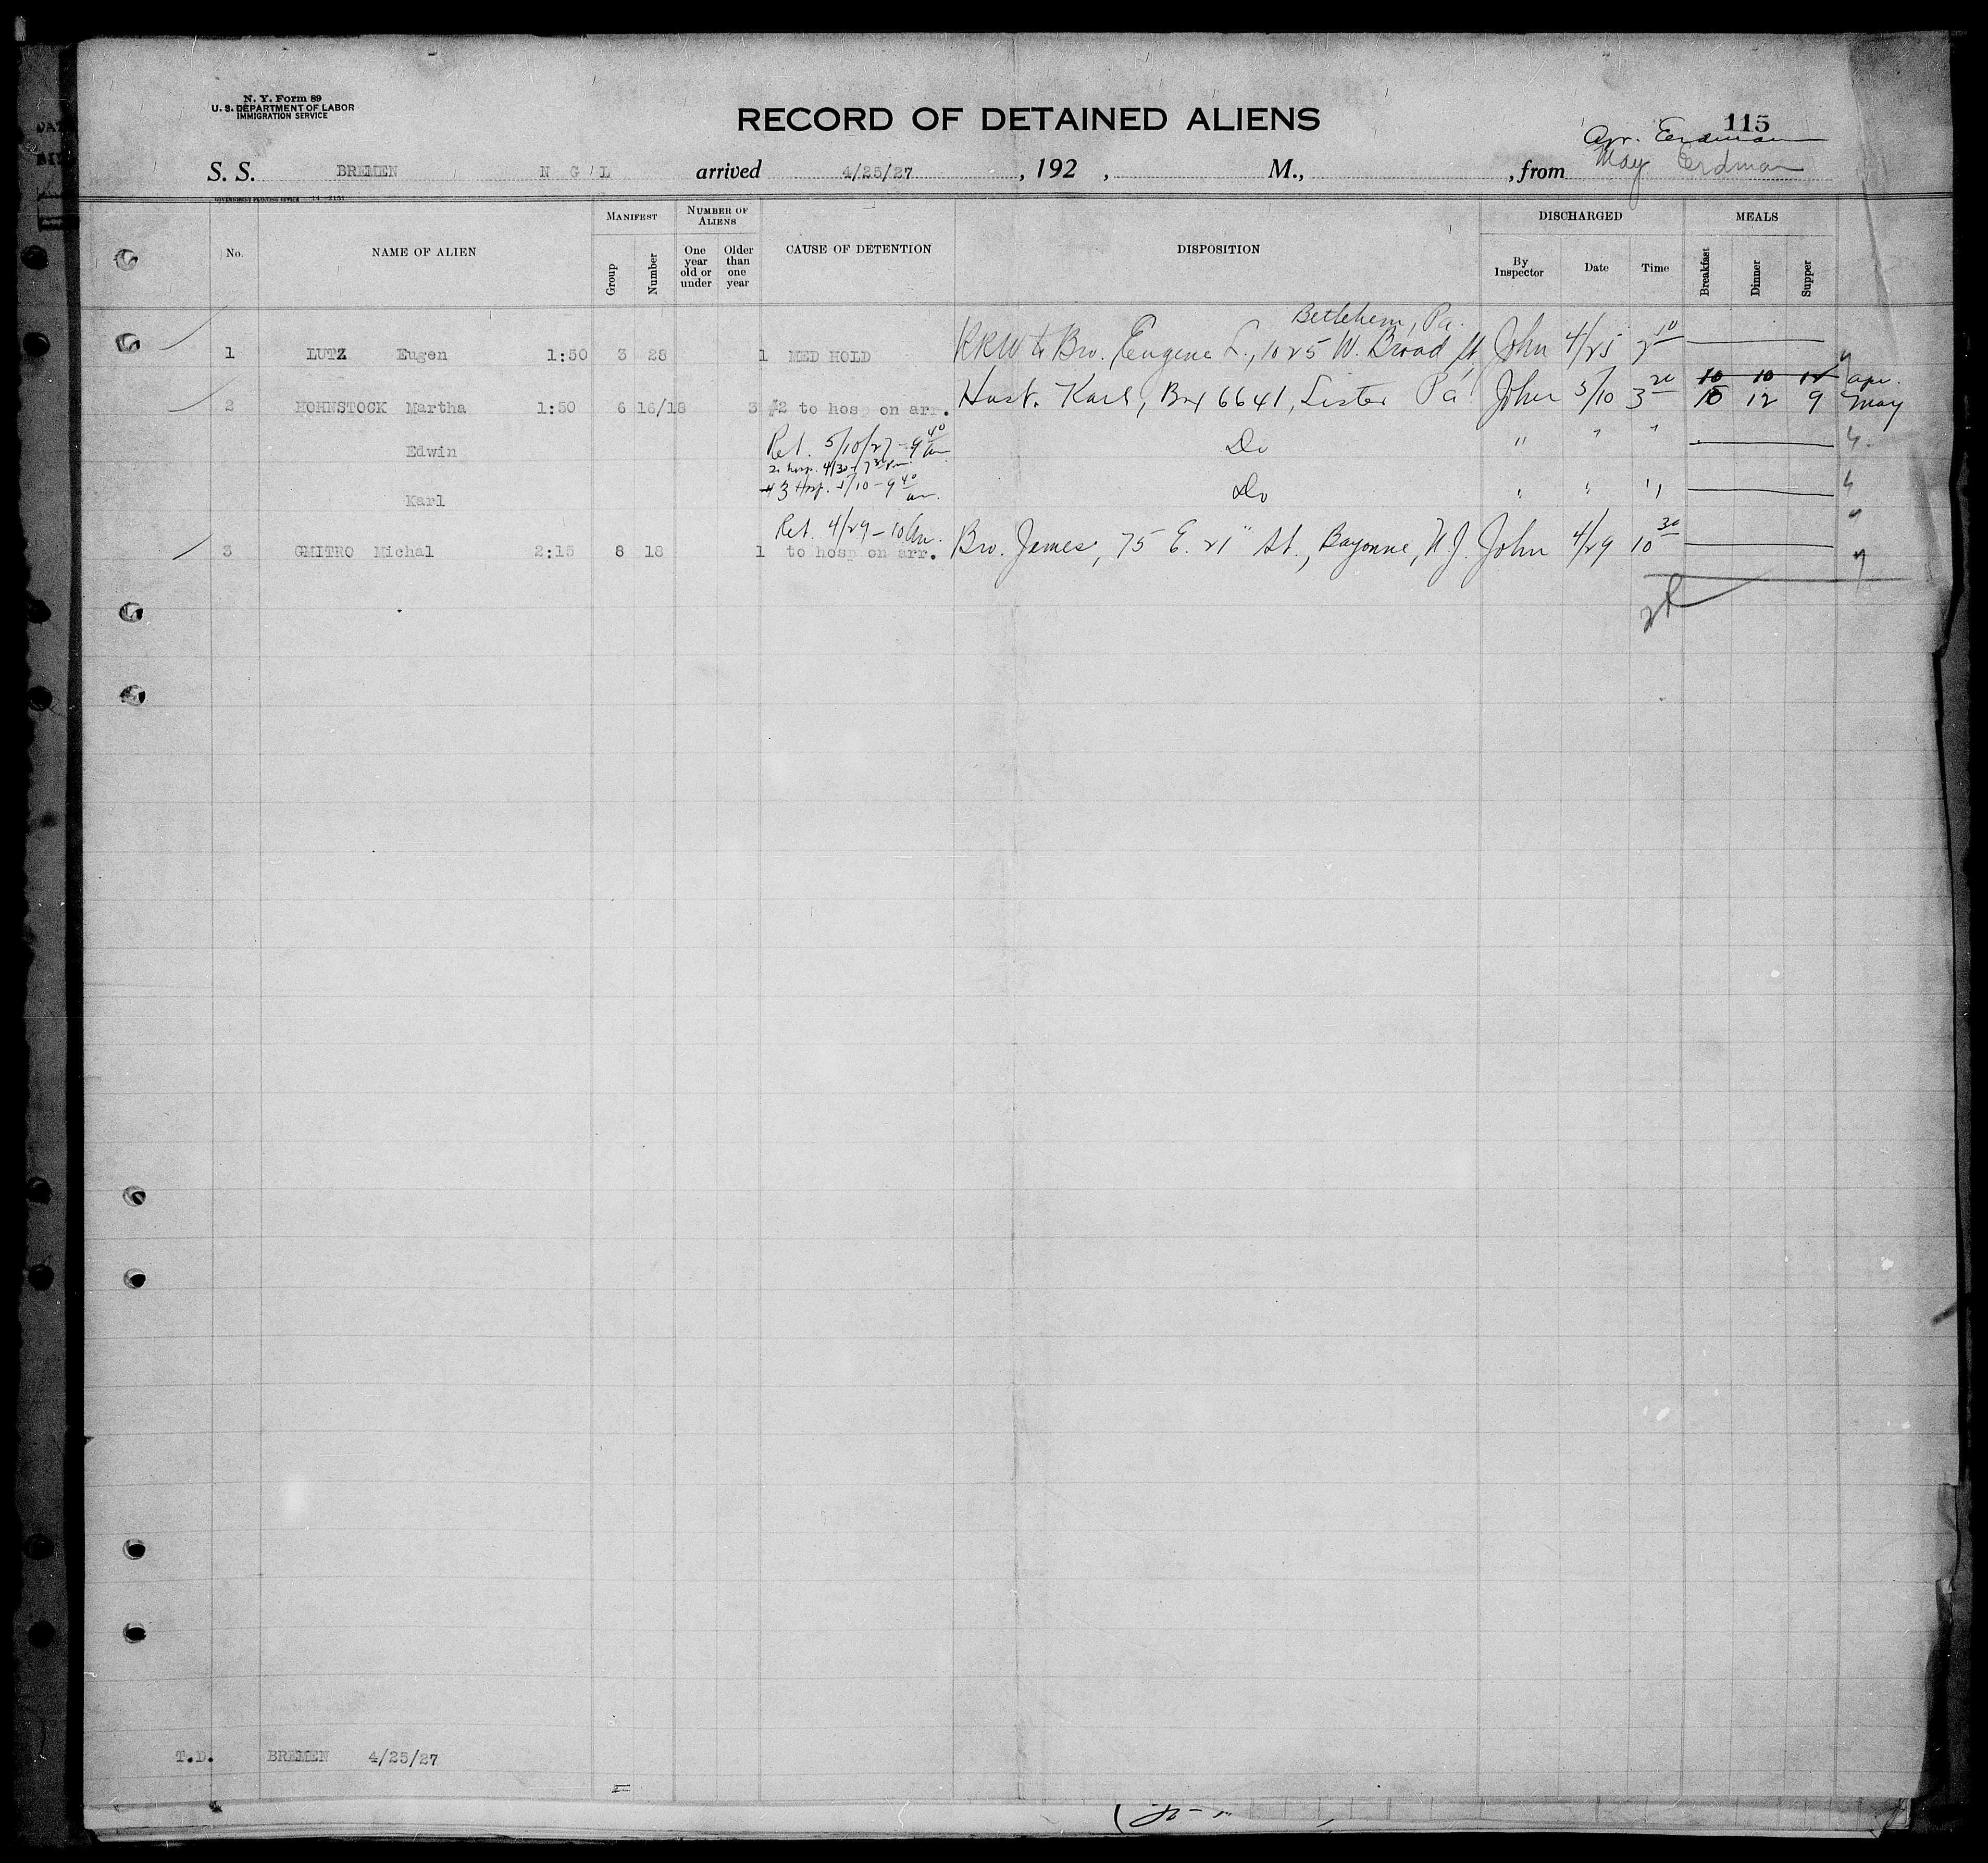 N. Y. Form 89
U. S. DEPARTMENT OF LABOR
IMMIGRATION SERVICE
RECORD OF DETAINED ALIENS
115
Apr. Erdman
May Erdman
S. S. BREMEN N G L arrived 4/25/27, 192 , M., , from
GOVERNMENT PRINTING OFFICE 14-2151
No. NAME OF ALIEN MANIFEST Group Number NUMBER OF ALIENS One year old or under Older than one year CAUSE OF DETENTION DISPOSITION DISCHARGED By Inspector Date Time MEALS Breakfast Dinner Supper
Bethlehem, Pa.
1 LUTZ Eugen 1:50 3 28 1 MED HOLD RRW to Bro. Eugene L., 1025 W. Broad St, John 4/25 2 10
10 10 12 apr.
2 HOHNSTOCK Martha 1:50 6 16/18 3 #2 to hosp on arr. Husb. Karl, Box 6641, Lister Pa John 5/10 3 20 15 12 9 May
Edwin Ret. 5/10/27 - 9 40 am Do " " "
2 hosp. 4/30 - 7 30 pm
Karl #3 Hosp. 5/10 - 9 40 am. Do " " "
Ret. 4/29 - 10 am.
3 GMITRO Michal 2:15 8 18 1 to hosp on arr. Bro. James, 75 E. 21" St., Bayonne, N.J. John 4/29 10 30
T.D. BREMEN 4/25/27